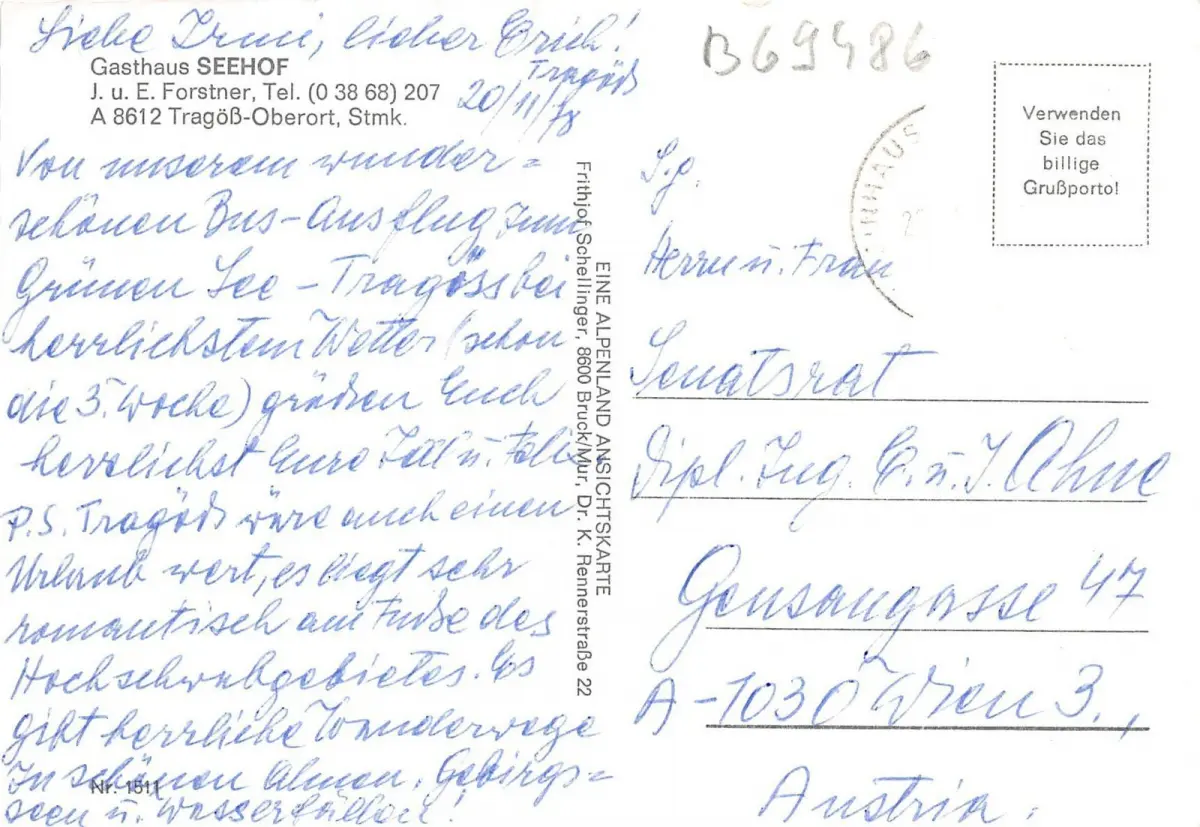 Liebe Irmi, lieber Erich!
B69486
Gasthaus SEEHOF
J. u. E. Forstner, Tel. (0 38 68) 207
A 8612 Tragöß-Oberort, Stmk.
Tragöß
20/11/78
Von unserem wunder=
schönen Bus-Ausflug zum
Grünen See - Tragöss bei
herrlichstem Wetter (schon
die 3. Woche) grüßen Euch
herzlichst Eure u.
P.S. Tragöß wäre auch einen
Urlaub wert, es liegt sehr
romantisch am Fuße des
Hochschwabgebietes. Es
gibt herrliche Wanderwege
in schönen Almen, Gebirgs=
seen u. Wasserfällen!
Nr. 1511
EINE ALPENLAND ANSICHTSKARTE
Frithjof Schellinger, 8600 Bruck/Mur, Dr. K. Rennerstraße 22
Verwenden
Sie das
billige
Grußporto!
S.g.
Herrn u. Frau
Senatsrat
Dipl. Ing. E. u. I. Ahne
Gensaugasse 47
A-1030 Wien 3.,
Austria.